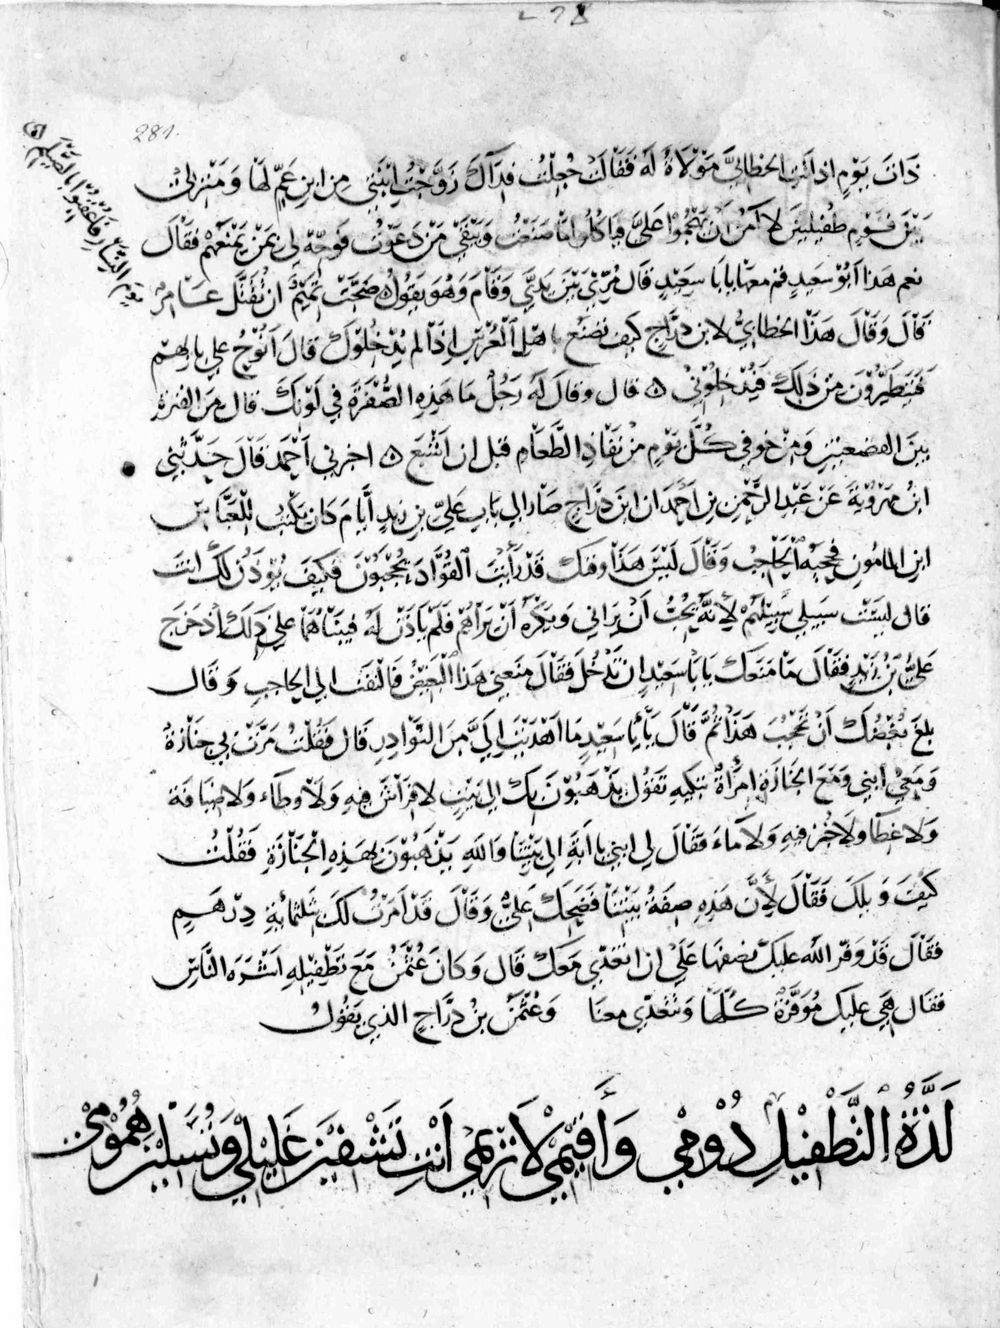 ٢٦٨
281.
يوم النسار فاعقبوا بالصيلم
ذات يوم اذ اتت الخطابيَّ مَوْلَاةٌ لَهُ فَقَالَت جُعِلْتُ فِدَآكَ زَوَّجْتُ اِبْنَتِي مِن ابنِ عَمٍّ لَهَا وَمَنْزِلِي
بَيْنَ قَوْمٍ طُفَيْلِيِّينَ لا آمَنُ اَنْ يَهْجِمُوا عَلَيَّ فياكلوا مَا صَنَعْتُ وَيَبْقَى مَن دَعَوْتُ فَوَجِّهْ لِي بِمَنْ يَمْنَعُهُمْ فَقَالَ
نعم هذا اَبُو سَعيدٍ قم معها يابَا سَعِيدٍ قَالَ مُرِّي بَيْنَ يَدَيَّ وَقَام وَهُوَ يَقُولُ ضَجَّتْ تَمِيْمٌ اَنْ تُقَتَّلَ عَامِرٌ
قَالَ وَقَالَ هَذَا الخطابيُّ لابن درّاجٍ كيف تصنَع باهلِ العُرسِ اِذَا لم يُدْخِلُوكَ قَالَ اَنُوْحُ على بابهم
فَيَتَطَيَّرُونَ مِنْ ذَلِكَ فَيُدْخِلُونِي ۵ قال وقال لَهُ رَجُلٌ مَا هَذِهِ الصُّفْرَةُ فِي لَوْنِكَ قال مِنَ الفترة
بينَ القصعتين وَمِن خوفي كُلَّ يَوْمٍ مِنْ نفَاذِ الطَّعَامِ قبل ان اَشْبَعَ ۵ اخبرني اَحْمَدُ قَالَ حَدَّثَنِي
ابنُ مَهرُويَةَ عَنْ عَبْدِ الرَّحْمنِ بنِ اَحْمَدَ ان ابنَ درّاجٍ صَارَ الى بابِ عَلِيّ بن زيدٍ ايَّامَ كان يكتُب للعَبَّاسِ
ابنِ المامُونِ فحجبه الحَاجِبُ وَقَالَ لَيْسَ هَذَا وقتك قَدْ رَأَيْتَ القُوَّادَ يُحْجَبُوْنَ فَكَيفَ يُوذَنُ لكَ انتَ
قالَ لَيْسَتْ سَبِيلي سَبِيلَهُم لأِنَّهُ يُحِبُّ اَنْ يَرَاني وَيَكرَهُ اَنْ يَرَاهُم فَلَمْ يَاذَنْ لَهُ فَبَيْنَا هُمَا على ذَلكَ اذ خَرجَ
عَلِيُّ بْنُ زَيْدٍ فَقَالَ مَا مَنَعَكَ يَابَا سَعِيدٍ ان تَدْخُلَ فَقَالَ مَنَعَنِي هَذَا البَغِيْضُ فَالتَفَتَ الى الحاجِبِ وَقَالَ
بَلَغَ بُغْضُكَ اَنْ تَحْجُبَ هَذَا ثُمَّ قَالَ يَابَا سَعِيْدٍ مَا اَهْدَيْتَ اِلَيَّ مِنَ النَّوَادِرِ قَالَ فَقُلْتُ مَرَّتْ بي جنَازَةٌ
وَمَعِي اِبني وَمَعَ الجنازَةِ اِمرأَةٌ تبكيهِ تَقُولُ يَذْهَبُوْنَ بِكَ الى بَيْتٍ لا فِرَاشَ فيهِ وَلَا وِطَآء وَلا ضِيَافَة
وَلا غِطَا ولا خبز فيهِ وَلا مآء فَقَالَ لي ابني يا ابَةِ الى بَيْتِنَا وَاللهِ يَذْهَبُوْنَ بِهَذِهِ الْجَنَازَةِ فَقُلْتُ
كيْفَ وَيلَكَ فَقَالَ لِأَنَّ هَذِهِ صِفَةُ بَيْتِنَا فَضَحِكَ عَليٌّ وَقَالَ قَدْ اَمَرْتُ لَكَ بثلثمائَةِ دِرْهَمٍ
فَقَالَ قَدْ وَفّرَ الله عليكَ نصفَها عَلَى ان اتَغَدّى مَعَكَ قَال وَكانَ عُثْمنُ مَعَ تَطْفِيلِهِ اَشْرَهَ النَّاسِ
فَقَالَ هِيَ عليكَ مُوَفَّرَةٌ كُلُّها وَتَتَغَدّى معنا وَعُثْمنُ بنُ درّاجٍ الذي يَقُولُ
لَذَّةُ التَّطْفِيْلِ دُوْمِي وَأَقِيْمِي لَا تَرِيْمِي اَنْتِ تَشْفِيْنَ غَلِيْلِي وَتُسَلِّيْنَ هُمُوْمِي